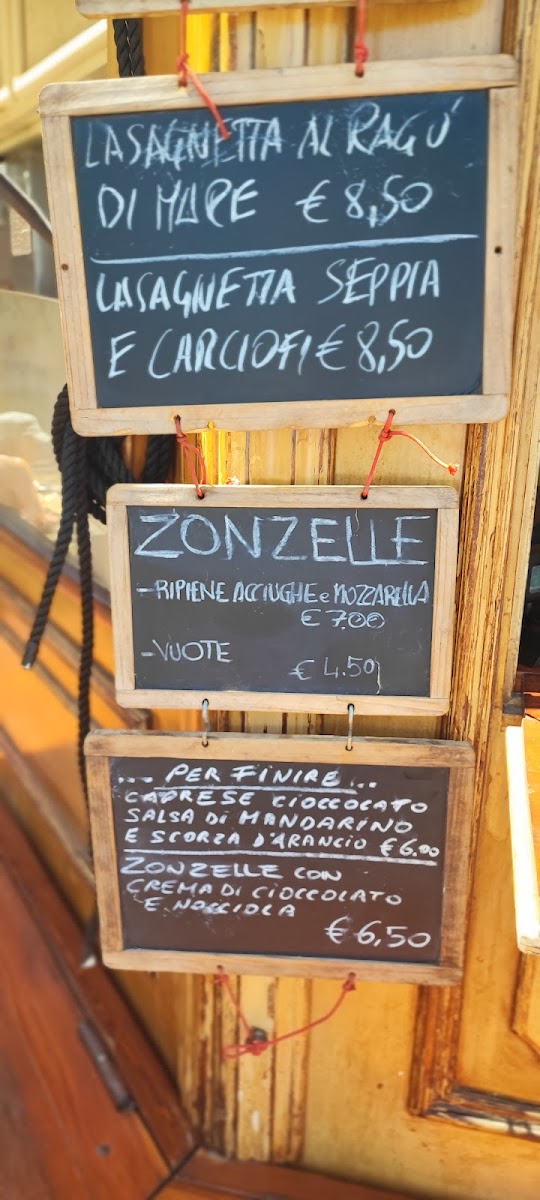 LASAGNETTA AL RAGÚ
DI MARE € 8,50
LASAGNETTA SEPPIA
E CARCIOFI € 8,50
ZONZELLE
-RIPIENE ACCIUGHE e MOZZARELLA
€ 7.00
-VUOTE
€ 4.50
... PER FINIRE ...
CAPRESE CIOCCOLATO
SALSA DI MANDARINO
E SCORZA D'ARANCIO € 6.00
ZONZELLE CON
CREMA DI CIOCCOLATO
E NOCCIOLA
€ 6,50